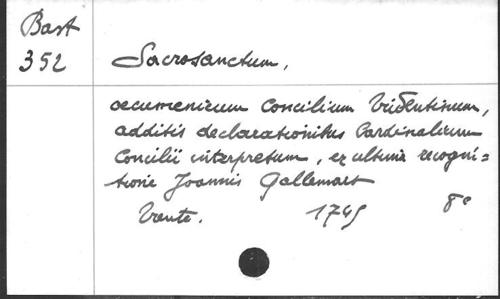 Bast
352
Sacrosanctum,
oecumenicum Concilium Tridentinum,
additis declarationibus Cardinalium
Concilii interpretum, ex ultima recogni=
tione Joannis Gallemart
1745 8°